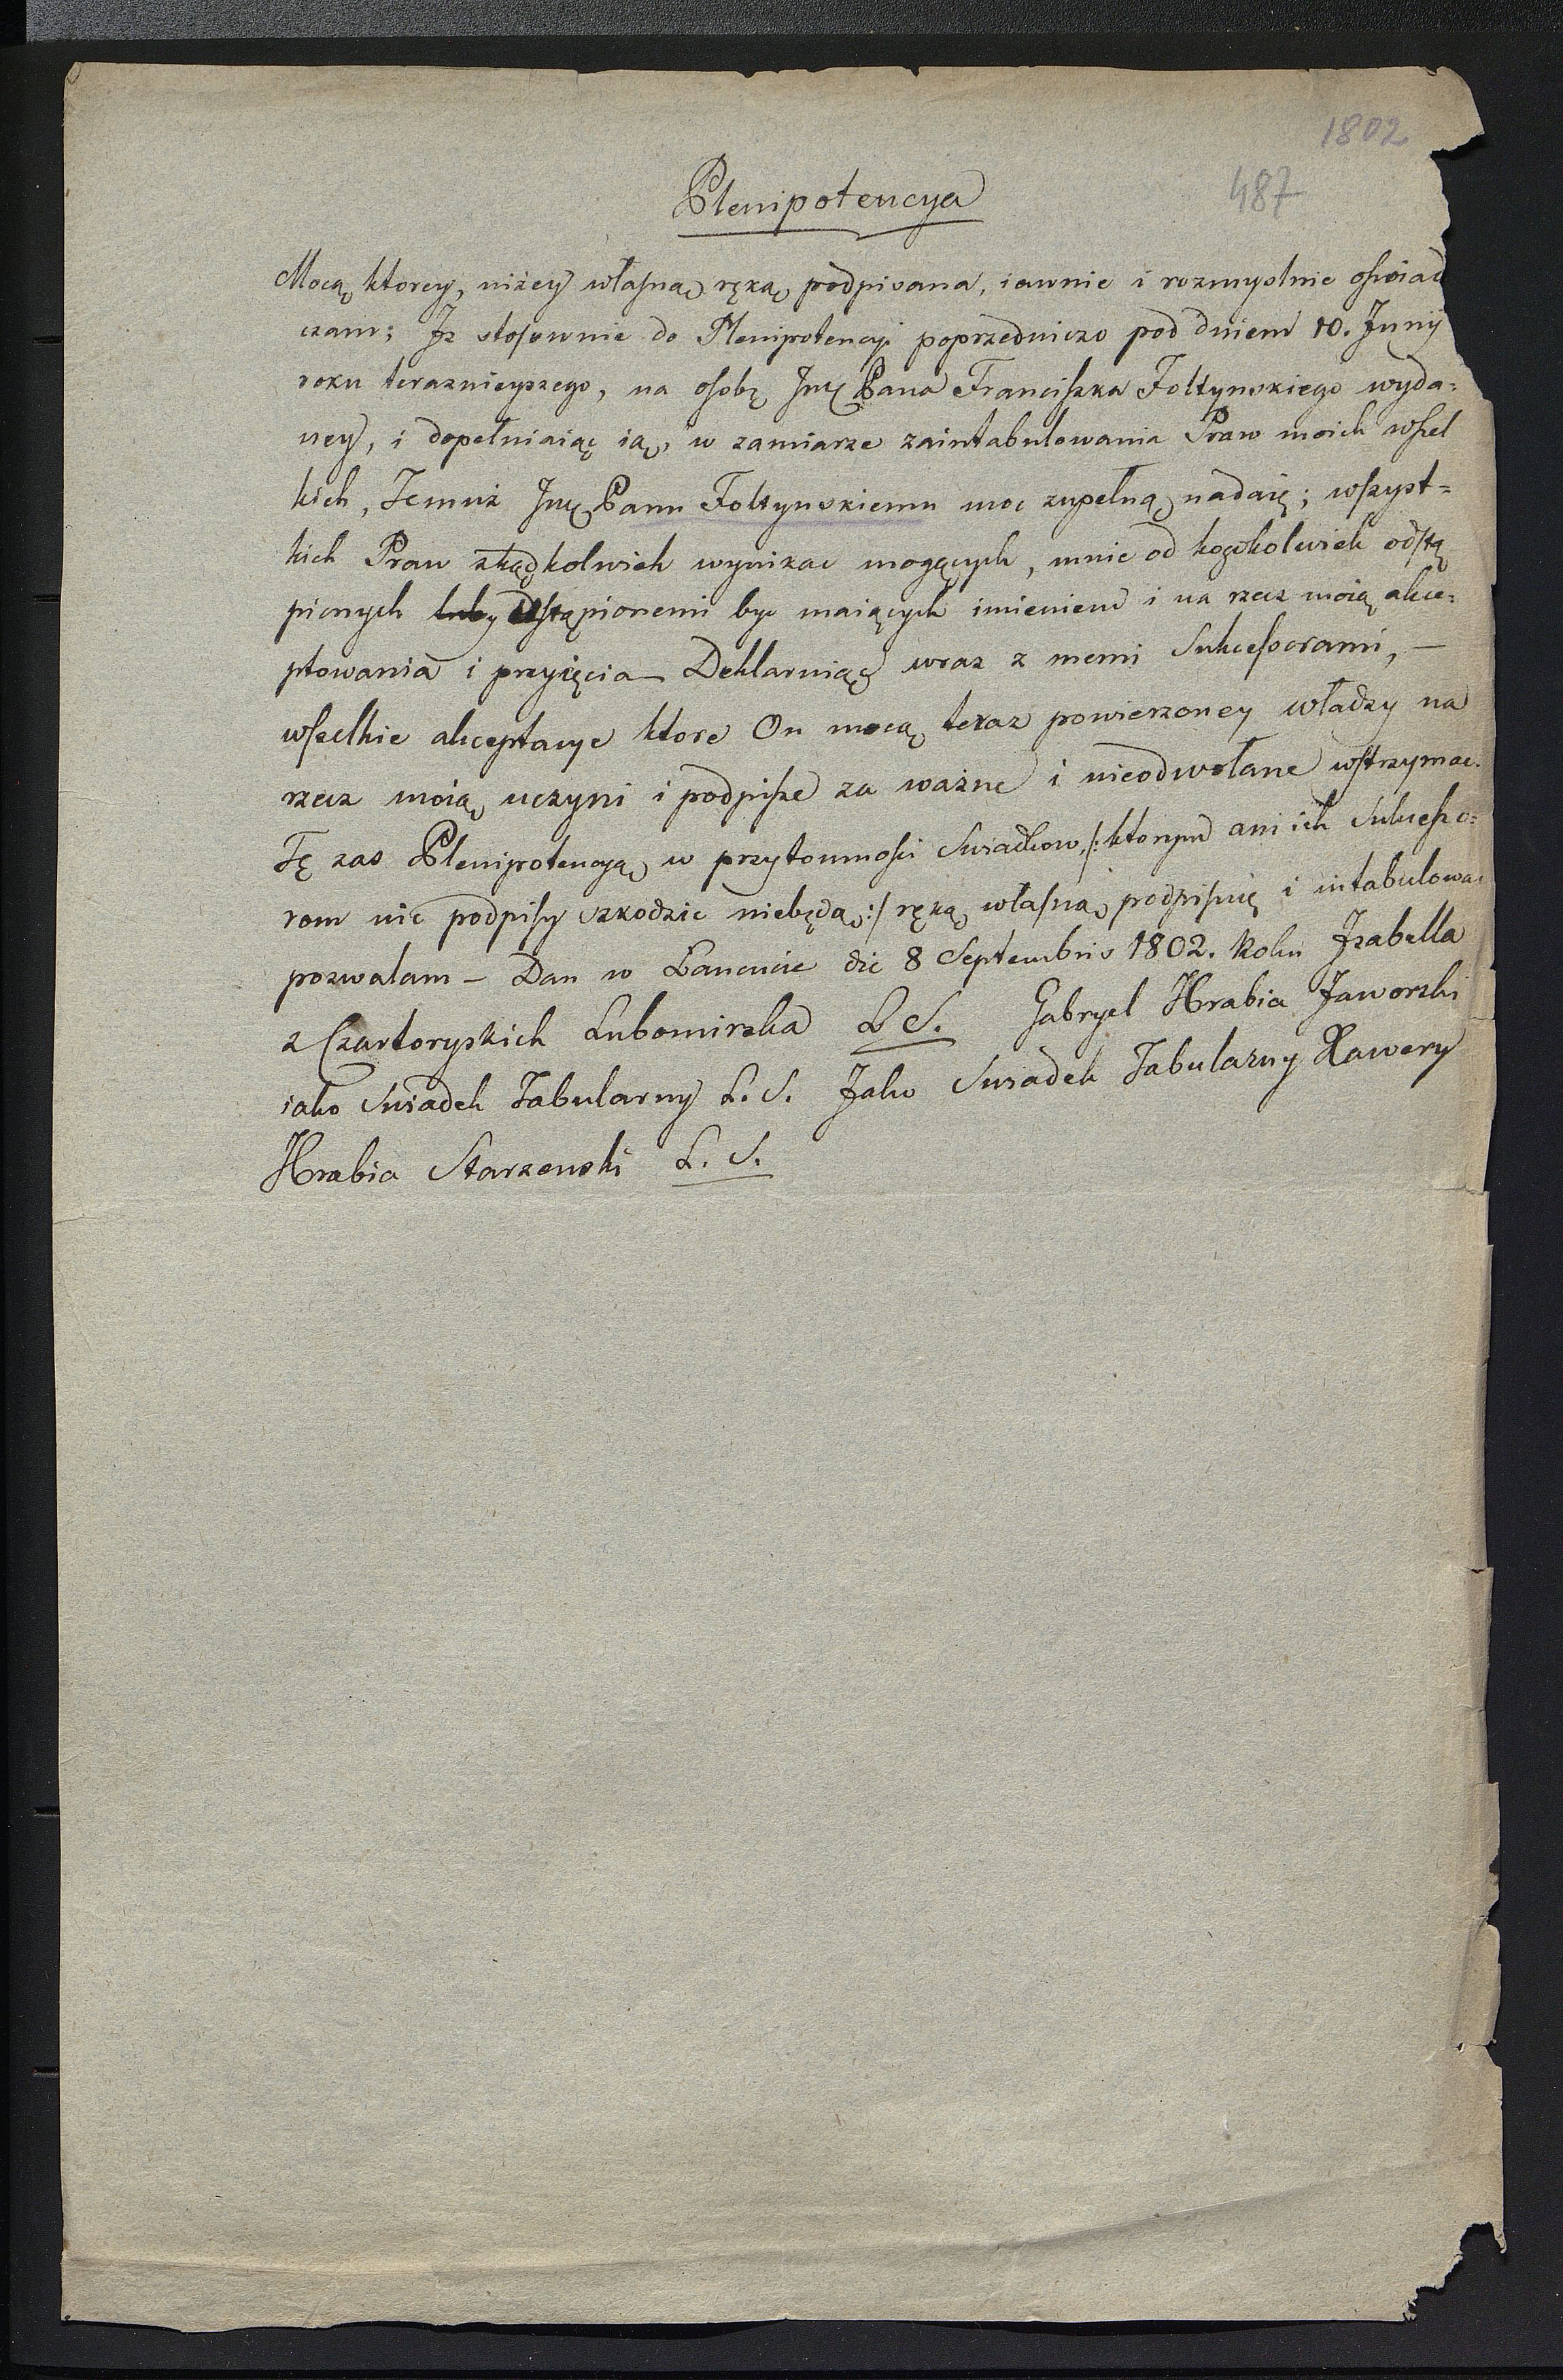 1802
487
Plenipotencya
Mocą ktorey, niżey własną ręką podpisana, iawnie i rozmyslnie oswiad
czam; Jz stosownie do Plenipotencyi poprzedniczo pod dniem 10. Junij
roku teraznieyszego, na osobę Jmć Pana Franciszka Foltynskiego wyda=
ney, i dopełniaiąc ią, w zamiarze zaintabulowania Praw moich wszel
kich, Temuż Jmć Panu Foltynskiemu moc zupełną nadaię; wszyst=
kich Praw zkądkolwiek wynikac mogących, mnie od kogokolwiek odstą
pionych odstąpionemi byc maiących imieniem i na rzecz moią akce=
ptowania i przyięcia — Deklaruiąc wraz z memi Sukcessorami, —
wszelkie akceptacye ktore On mocą teraz powierzoney władzy na
rzecz moią uczyni i podpisze za ważne i nieodwołane wstrzymac.
Tę zas Plenipotencyą w przytomnosci Swiadkow, /: ktorym ani ich Sukcesso=
rom nic podpisy szkodzic niebędą :/ ręką własną podpisuię i intabulowac
pozwalam — Dan w Łancucie die 8 Septembris 1802. Roku Jzabella
z Czartoryskich Lubomirska L. S. Gabryel Hrabia Jaworski
iako Swiadek Tabularny L. S. Jako Swiadek Tabularny Xawery
Hrabia Starzenski L. S.